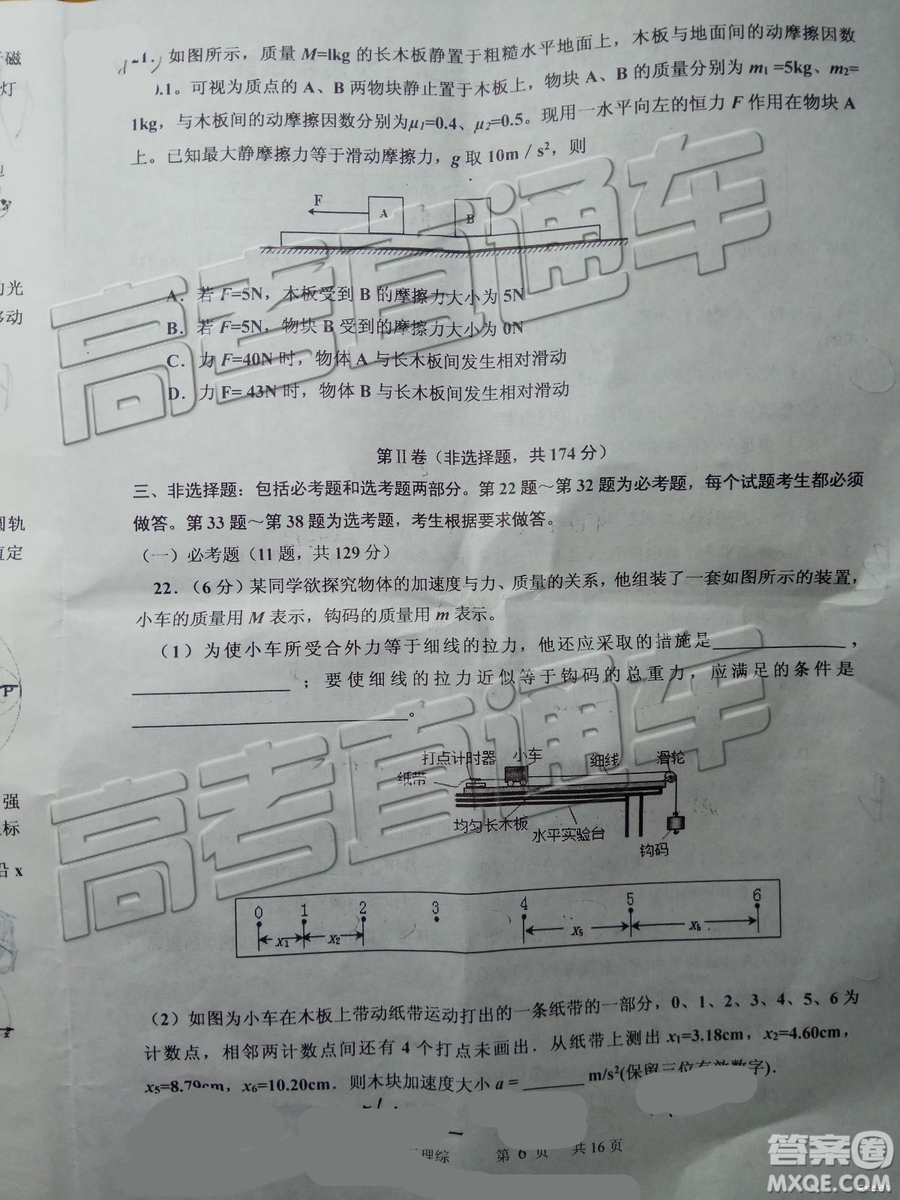 于磁
灯
21．如图所示，质量 M=1kg 的长木板静置于粗糙水平地面上，木板与地面间的动摩擦因数
0.1。可视为质点的 A、B 两物块静止置于木板上，物块 A、B 的质量分别为 m1 =5kg、m2=
1kg，与木板间的动摩擦因数分别为μ1=0.4、μ2=0.5。现用一水平向左的恒力 F 作用在物块 A
上。已知最大静摩擦力等于滑动摩擦力，g 取 10m／s²，则
F
A
B
A．若 F=5N，木板受到 B 的摩擦力大小为 5N
B．若 F=5N，物块 B 受到的摩擦力大小为 0N
C．力 F=40N 时，物体 A 与长木板间发生相对滑动
D．力 F= 43N 时，物体 B 与长木板间发生相对滑动
光
移动
第Ⅱ卷（非选择题，共 174 分）
三、非选择题：包括必考题和选考题两部分。第 22 题～第 32 题为必考题，每个试题考生都必须
做答。第 33 题～第 38 题为选考题，考生根据要求做答。
（一）必考题（11 题，共 129 分）
圆轨
直定
22．(6 分) 某同学欲探究物体的加速度与力、质量的关系，他组装了一套如图所示的装置，
小车的质量用 M 表示，钩码的质量用 m 表示。
（1）为使小车所受合外力等于细线的拉力，他还应采取的措施是____________，
____________；要使细线的拉力近似等于钩码的总重力，应满足的条件是
____________。
打点计时器 小车 细线 滑轮
纸带
均匀长木板 水平实验台
钩码
强
标
沿 x
0 1 2 3 4 5 6
x1 x2 x5 x6
（2）如图为小车在木板上带动纸带运动打出的一条纸带的一部分，0、1、2、3、4、5、6 为
计数点，相邻两计数点间还有 4 个打点未画出．从纸带上测出 x1=3.18cm，x2=4.60cm，
x5=8.79cm，x6=10.20cm．则木块加速度大小 a = ______ m/s²(保留三位有效数字)．
理综 第 6 页 共 16 页
高考直通车
高考直通车
答案圈
MXQE.COM